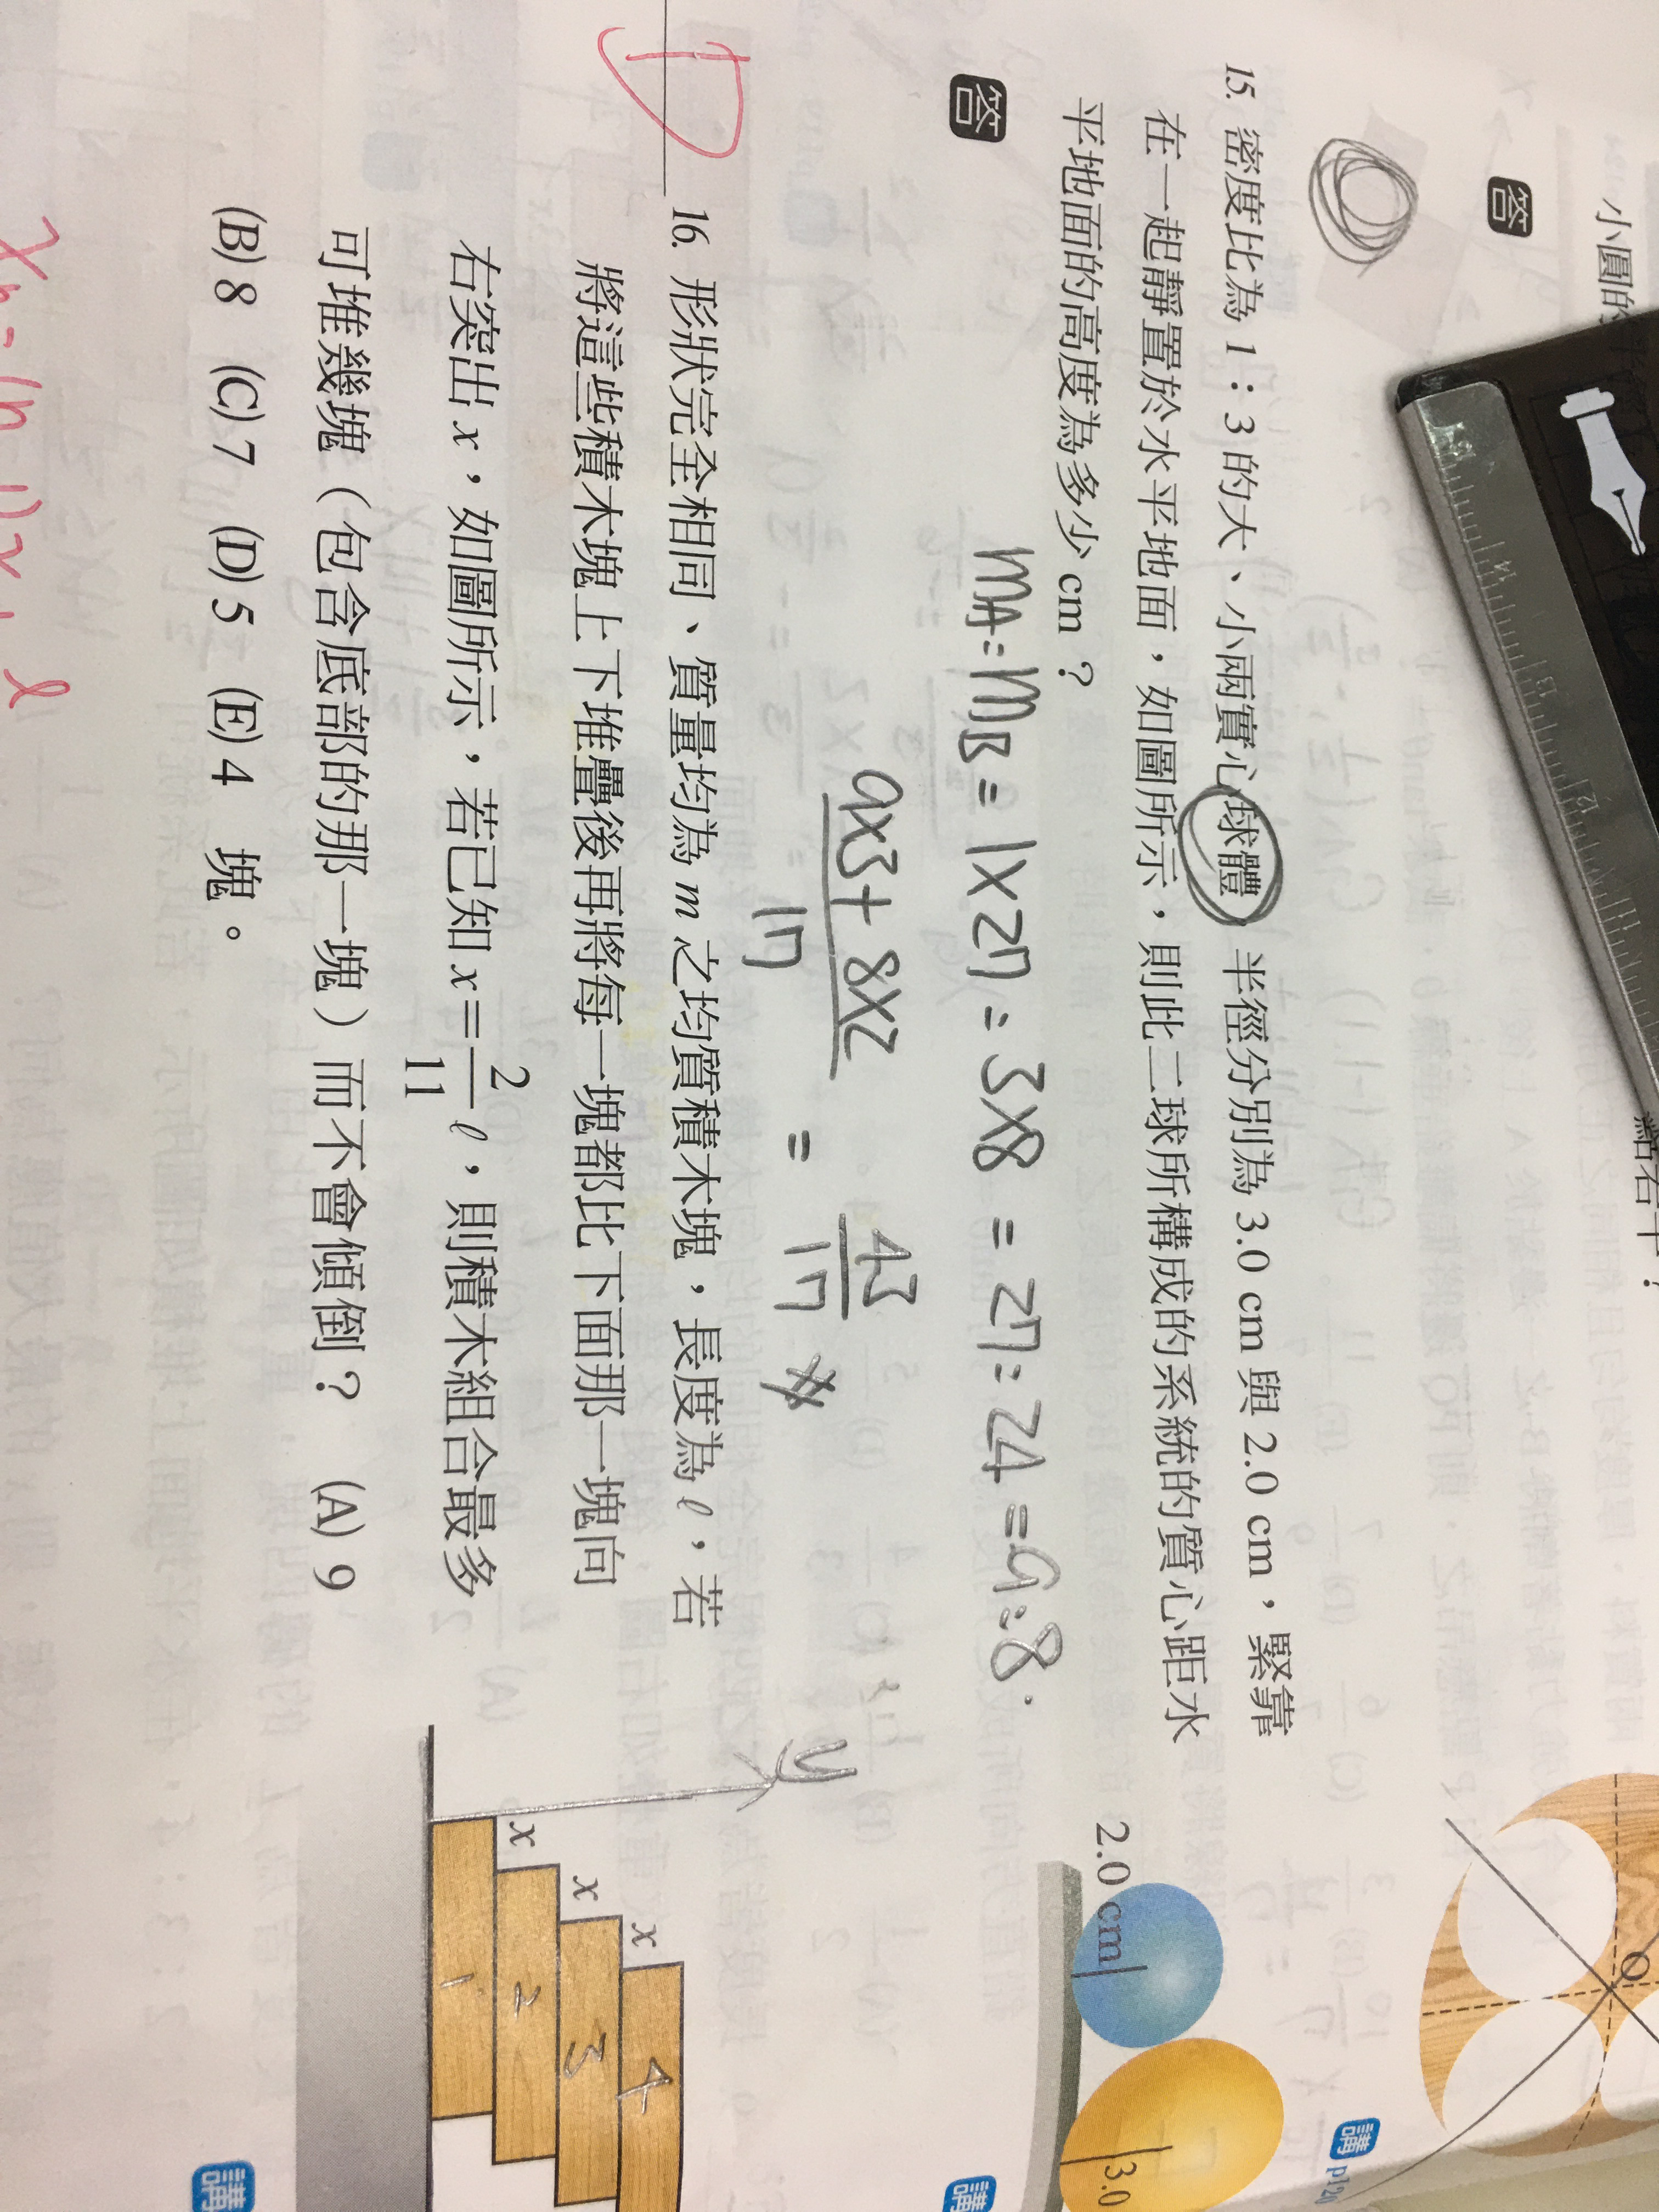 小圓的
點右半？
答
15. 密度比為 1：3 的大、小兩實心球體 半徑分別為 3.0 cm 與 2.0 cm，緊靠
在一起靜置於水平地面，如圖所示，則此二球所構成的系統的質心距水
平地面的高度為多少 cm？
答
mA:mB = 1×27 : 3×8 = 27:24 = 9:8.
9×3+8×2
17
=
43
17
O
講 p120
2.0 cm
3.0
講
D
16. 形狀完全相同、質量均為 m 之均質積木塊，長度為 ℓ，若
將這些積木塊上下堆疊後再將每一塊都比下面那一塊向
右突出 x，如圖所示，若已知 x＝2/11 ℓ，則積木組合最多
可堆幾塊（包含底部的那一塊）而不會傾倒？ (A) 9
(B) 8 (C) 7 (D) 5 (E) 4 塊。
y
x
x
x
4
3
2
1
講